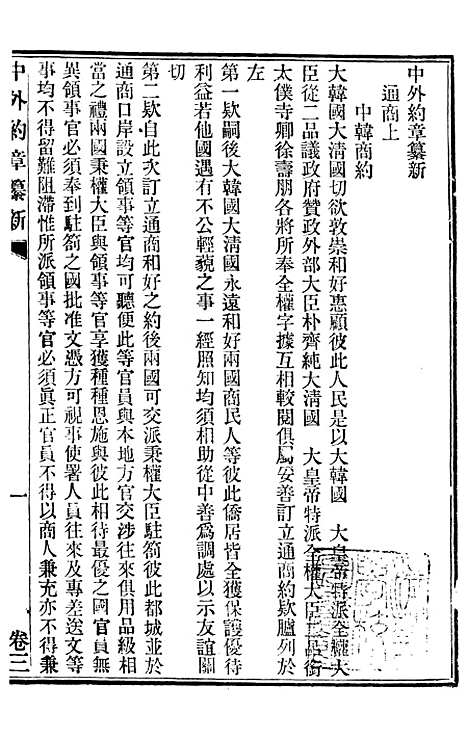 中外約章纂新
通商上
中韓商約
大韓國大清國切欲敦崇和好惠顧彼此人民是以大韓國 大皇帝特派全權大
臣從二品議政府贊政外部大臣朴齊純大清國 大皇帝特派全權大臣二品銜
太僕寺卿徐壽朋各將所奉全權字據互相較閱俱屬妥善訂立通商約款臚列於
左
第一款嗣後大韓國大清國永遠和好兩國商民人等彼此僑居皆全獲保護優待
利益若他國遇有不公輕藐之事一經照知均須相助從中善爲調處以示友誼關
切
第二款自此次訂立通商和好之約後兩國可交派秉權大臣駐箚彼此都城並於
通商口岸設立領事等官均可聽便此等官員與本地方官交涉往來俱用品級相
當之禮兩國秉權大臣與領事等官享獲種種恩施與彼此相待最優之國官員無
異領事官必須奉到駐箚之國批准文憑方可視事使署人員往來及專差送文等
事均不得留難阻滯惟所派領事等官必須眞正官員不得以商人兼充亦不得兼
中外約章纂新
一
卷三